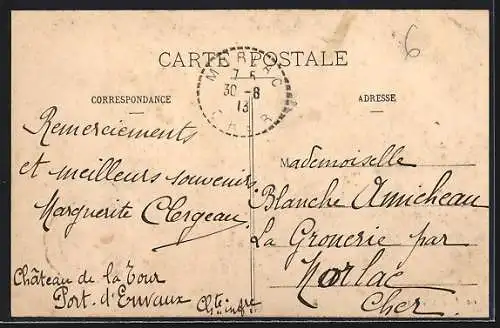 6
CARTE POSTALE
MORLAC
7 5
30 -8
13
CHER
CORRESPONDANCE
ADRESSE
Remerciements
et meilleurs souvenirs
Marguerite Clergeau.
Château de la Tour
Port. d'Envaux
Chte infre
Mademoiselle
Blanche Amicheau
La Gronerie par
Morlac
Cher.